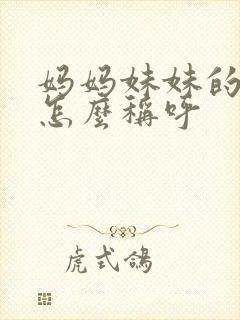 妈妈妹妹的
怎麼稱呼
虎式鴿